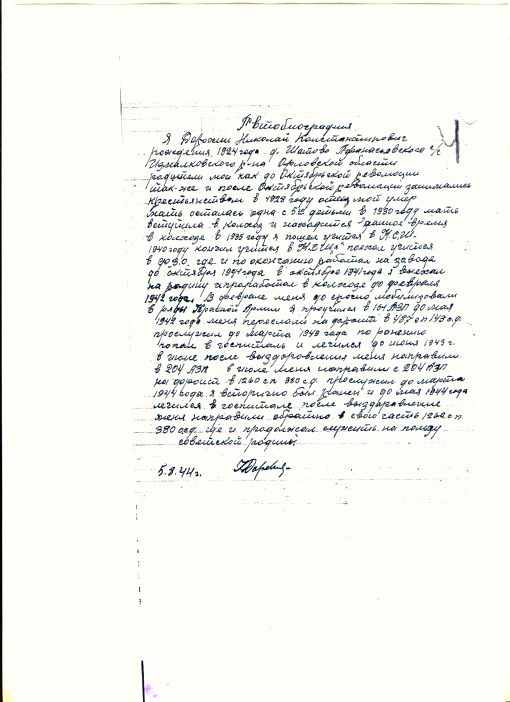 Автобиография
Я Дорохин Николай Константинович
рождения 1924 года д. Шатово Афанасьевского с/с
Измалковского р-на Орловской области
родители мои как до Октябрьской революции
так-же и после Октябрьской революции занимались
крестьянством в 1928 году отец мой умер
мать осталась одна с 5ю детьми в 1930 году мать
вступила в колхоз и находится данное время
в колхозе в 1935 году я пошел учится в Н.С.Ш.
1940 году кончил учится в Н.С.Ш. пошел учится
в ф.з.о. где и по окончанию работал на заводе
до октября 1941 года в октябре 1941 года я уехал
на родину и проработал в колхозе до февраля
1942 года. В феврале меня до срочно мобилизовали
в ряды Красной Армии я проучился в АЗП до мая
1942 года меня переслали на фронт в 487 сп 143 с.д.
прослужил до марта 1943 года по ранению
попал в госпиталь и лечился до июня 1943 г.
в июне после выздоровления меня направили
в 204 АЗП в июле меня направили с 204 АЗП
на фронт в 1260 с.п. 380 с.д. прослужил до марта
1944 года я вторично был ранен и до мая 1944 года
лечился в госпитале после выздоровление
меня направили обратно в свою часть 1260 с.п.
380 с.д. где и продолжал служить на пользу
советской родины
5.8.44 г.